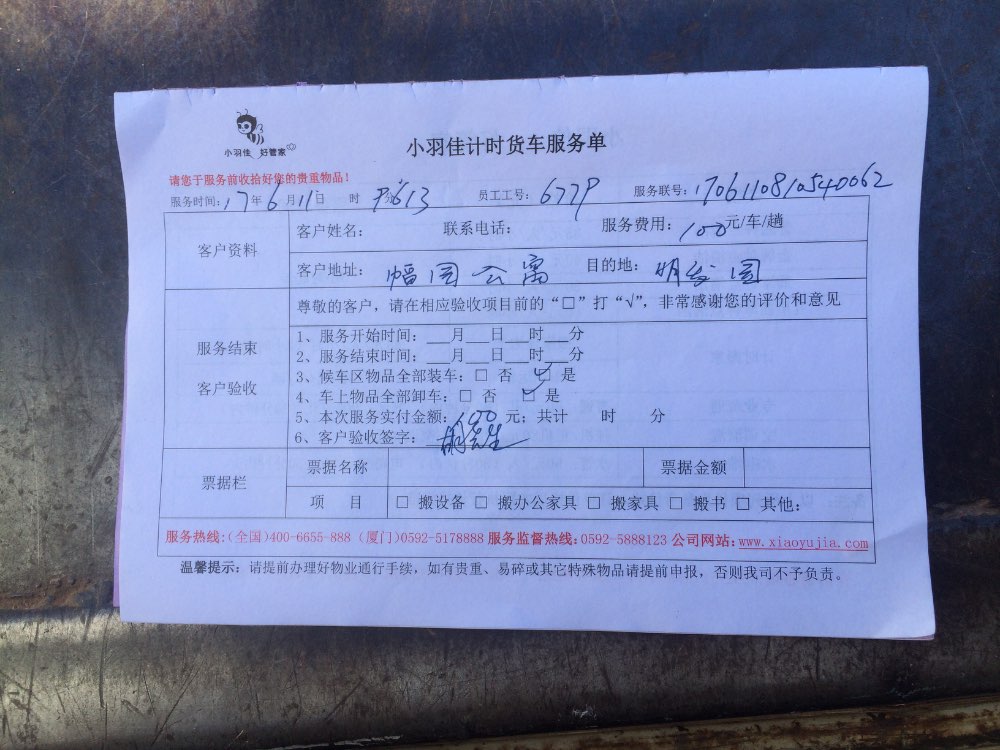 小羽佳 好管家
小羽佳计时货车服务单
请您于服务前收拾好您的贵重物品！
服务时间：17年6月11日 时 分 613 员工工号：6779 服务联号：170611081054 0062
客户资料
客户姓名： 联系电话： 服务费用：100元/车/趟
客户地址：幅园公寓 目的地：明发园
服务结束
客户验收
尊敬的客户，请在相应验收项目前的“□”打“√”，非常感谢您的评价和意见
1、服务开始时间：___月___日___时___分
2、服务结束时间：___月___日___时___分
3、候车区物品全部装车：□ 否 ☑ 是
4、车上物品全部卸车：□ 否 ☑ 是
5、本次服务实付金额：100元；共计 时 分
6、客户验收签字：
票据栏
票据名称 票据金额
项 目 □ 搬设备 □ 搬办公家具 □ 搬家具 □ 搬书 □ 其他：
服务热线：（全国）400-6655-888（厦门）0592-5178888 服务监督热线：0592-5888123 公司网站：www.xiaoyujia.com
温馨提示：请提前办理好物业通行手续，如有贵重、易碎或其它特殊物品请提前申报，否则我司不予负责。